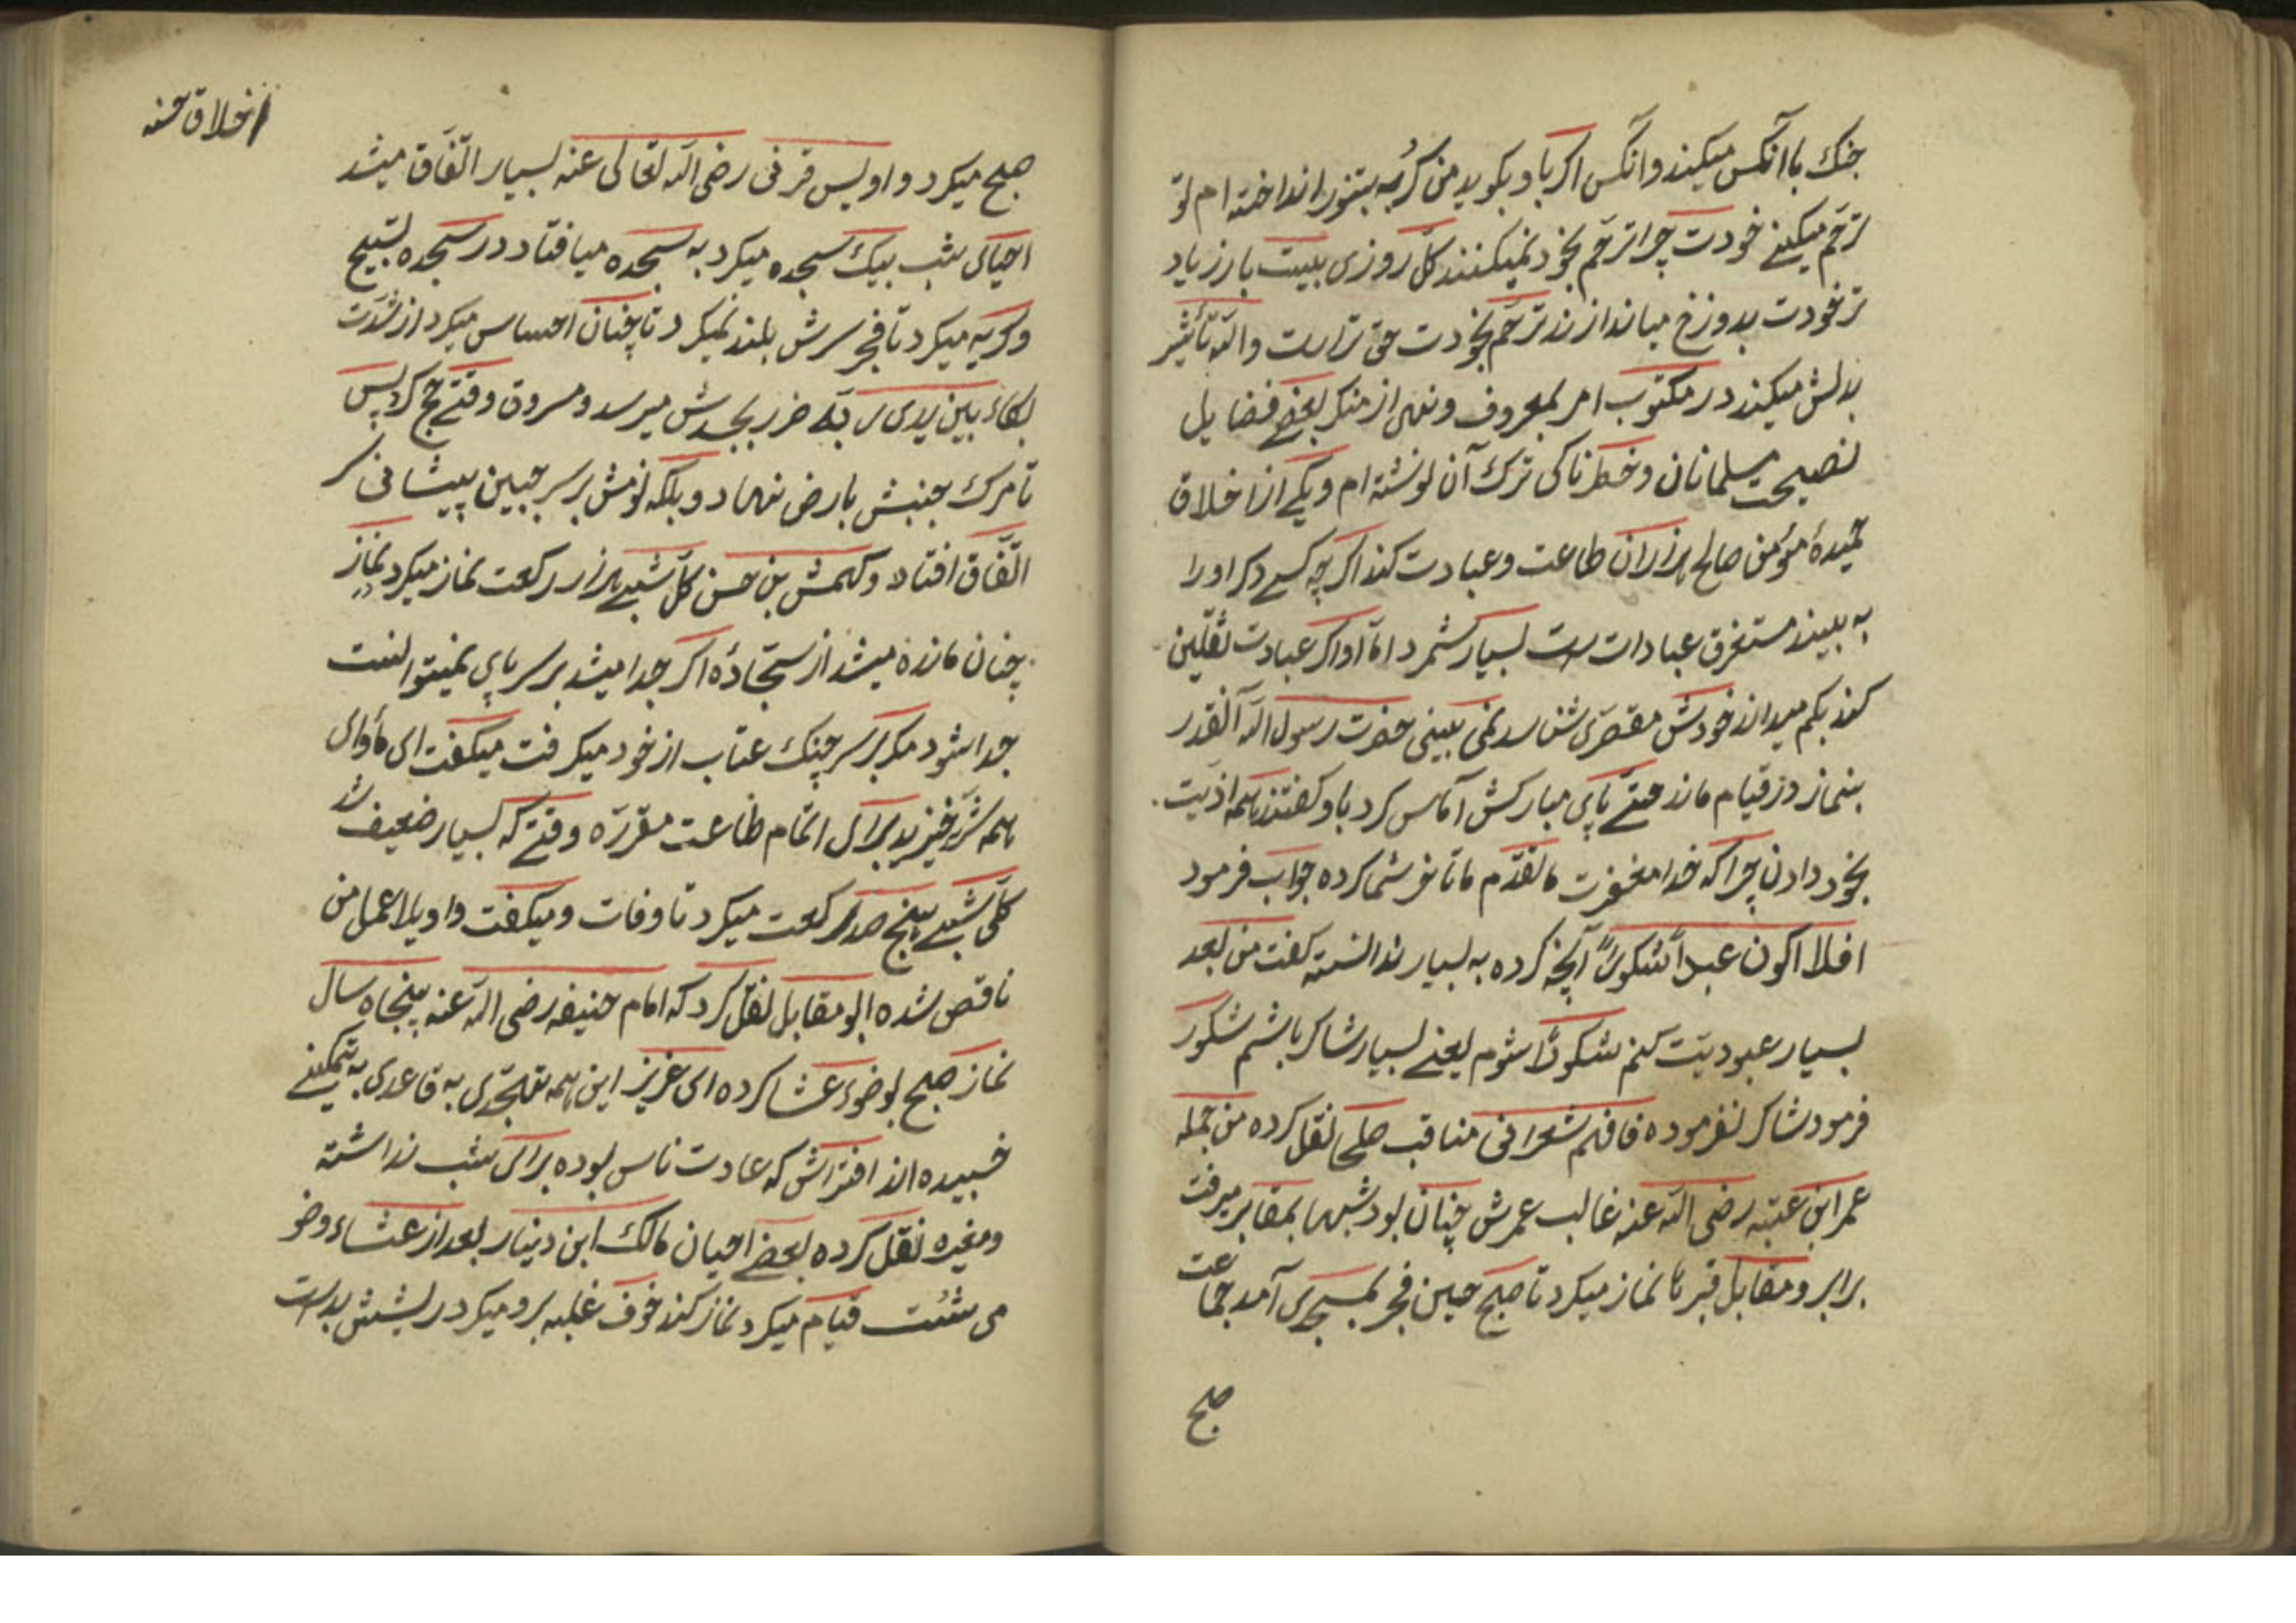 جنك با آنكس ميكند و آنكس اكر باو بكويد من كربه بتنور انداخته ام تو
ترحّم ميكنے خودت چرا ترحّم بخود نميكنند كلّ روزی بيست بار زياد
تر خودت بدوزخ مياندازند ترحّم بخودت حق تراست والله تأثير
بدلش ميكند در مكتوب امر بمعروف ونهی از منكر بعضے فضايل
نصيحت مسلمانان وخطرناكی ترك آن نوشته ام ويكے از اخلاق
حميدهٔ مؤمن صالح هزاران طاعت وعبادت كند اكرچه كسے دكر اورا
به بيند مستغرق عبادات است بسيار شمرد امّا او اكر عبادت ثقلين
كند بكم ميداند خودش مقصّری شناسد نمی بينی حضرت رسول الله آنقدر
بنماز در قيام ماند حتّے پای مباركش آماس كرد باو كفتند همه اذيّت
بخود دادن چراكه خدا مغفرت ما تقدّم ما تأخر شما كرده جواب فرمود
افلا اكون عبداً شكوراً آنچه كرده به بسيار ندانسته كفت من بعد
بسيار عبوديّت كنم شكوراً شوم يعنے بسيار شاكر باشم شكور
فرمود شاكر نفرموده فافهم شعرانی مناقب صلحا نقل كرده من جمله
عمر ابن عتبه رضی الله عنه غالب عمرش چنان بود شبها بمقابر ميرفت
برابر ومقابل قبرها نماز ميكرد تا صبح حين فجر بمسجدی آمد جماعت
صبح
اخلاق حسنه
صبح ميكرد و اويس قرنی رضی الله تعالی عنه بسيار اتّفاق ميشد
احيای شب بيك سجده ميكرد به سجده ميافتاد در سجده تسبيح
وكريه ميكرد تا فجر سرش بلند نميكرد تا چنان احساس ميكرد از شدّت
بكاء بين يدی ربّه ضرر بجسدش ميرسد ومسروق وقتے حج كرد پس
تا مرك جنبش بارض ننهاد وبلكه نومش بر سر جبين پيشانی
اتّفاق افتاد وكهمش بن حسن كلّ شبے هزار ركعت نماز ميكرد نماز
چنان مانده ميشد از سجّادهٔ اكر جدا ميشد بر سر پای نميتوانست
جدا شود مكر بر سر چنك عتاب از خود ميكرفت ميكفت ای مأوای
همه شرّ خيزيد برای اتمام طاعت مقرّره وقتے كه بسيار ضعيف شد
كلّ شبے پنج صد ركعت ميكرد تا وفات وميكفت واويلا عمل من
ناقص شده ابو مقابل نقل كرد كه امام حنيفه رضی الله عنه پنجاه سال
نماز صبح بوضوء عشا كرده ای عزيز اين همه تهجّدی به قاعدی به تمكينے
خسبيده اند افتراش كه عادت ناس بوده برای شب نداشته
ومغيره نقل كرده بعضے احيان مالك ابن دينار بعد از عشاء وضو
می شئت قيام ميكرد نماز كند خوف غلبه برو ميكرد ريشش بدست